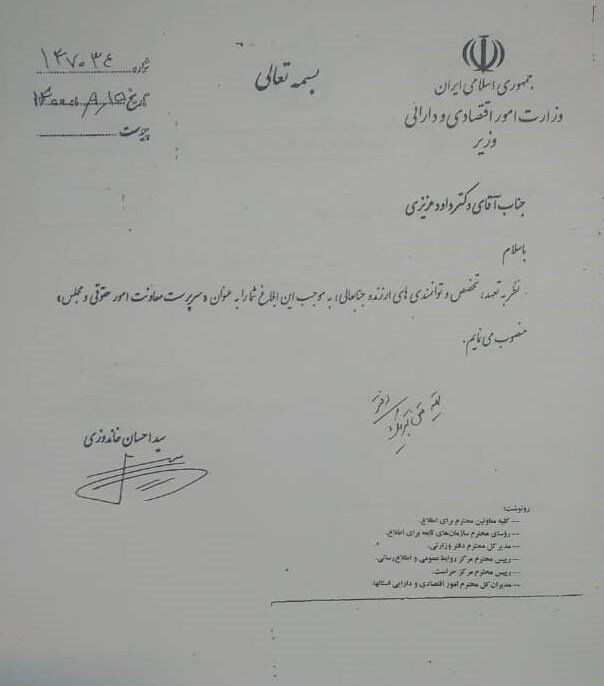 بسمه تعالی
جمهوری اسلامی ایران
وزارت امور اقتصادی و دارائی
وزیر
شماره ۱۴۷۰۳۴
تاریخ
پیوست
جناب آقای دکتر داود عزیزی
باسلام
نظر به تعهد، تخصص و توانمندی های ارزنده جنابعالی، به موجب این ابلاغ شما را به عنوان «سرپرست معاونت امور حقوقی و مجلس»
منصوب می نمایم.
سید احسان خاندوزی
رونوشت:
--- کلیه معاونین محترم برای اطلاع.
--- رؤسای محترم سازمان‌های تابعه برای اطلاع.
--- مدیر کل محترم دفتر وزارتی.
--- رییس محترم مرکز روابط عمومی و اطلاع رسانی.
--- رییس محترم مرکز حراست.
--- مدیران کل محترم امور اقتصادی و دارایی استانها.